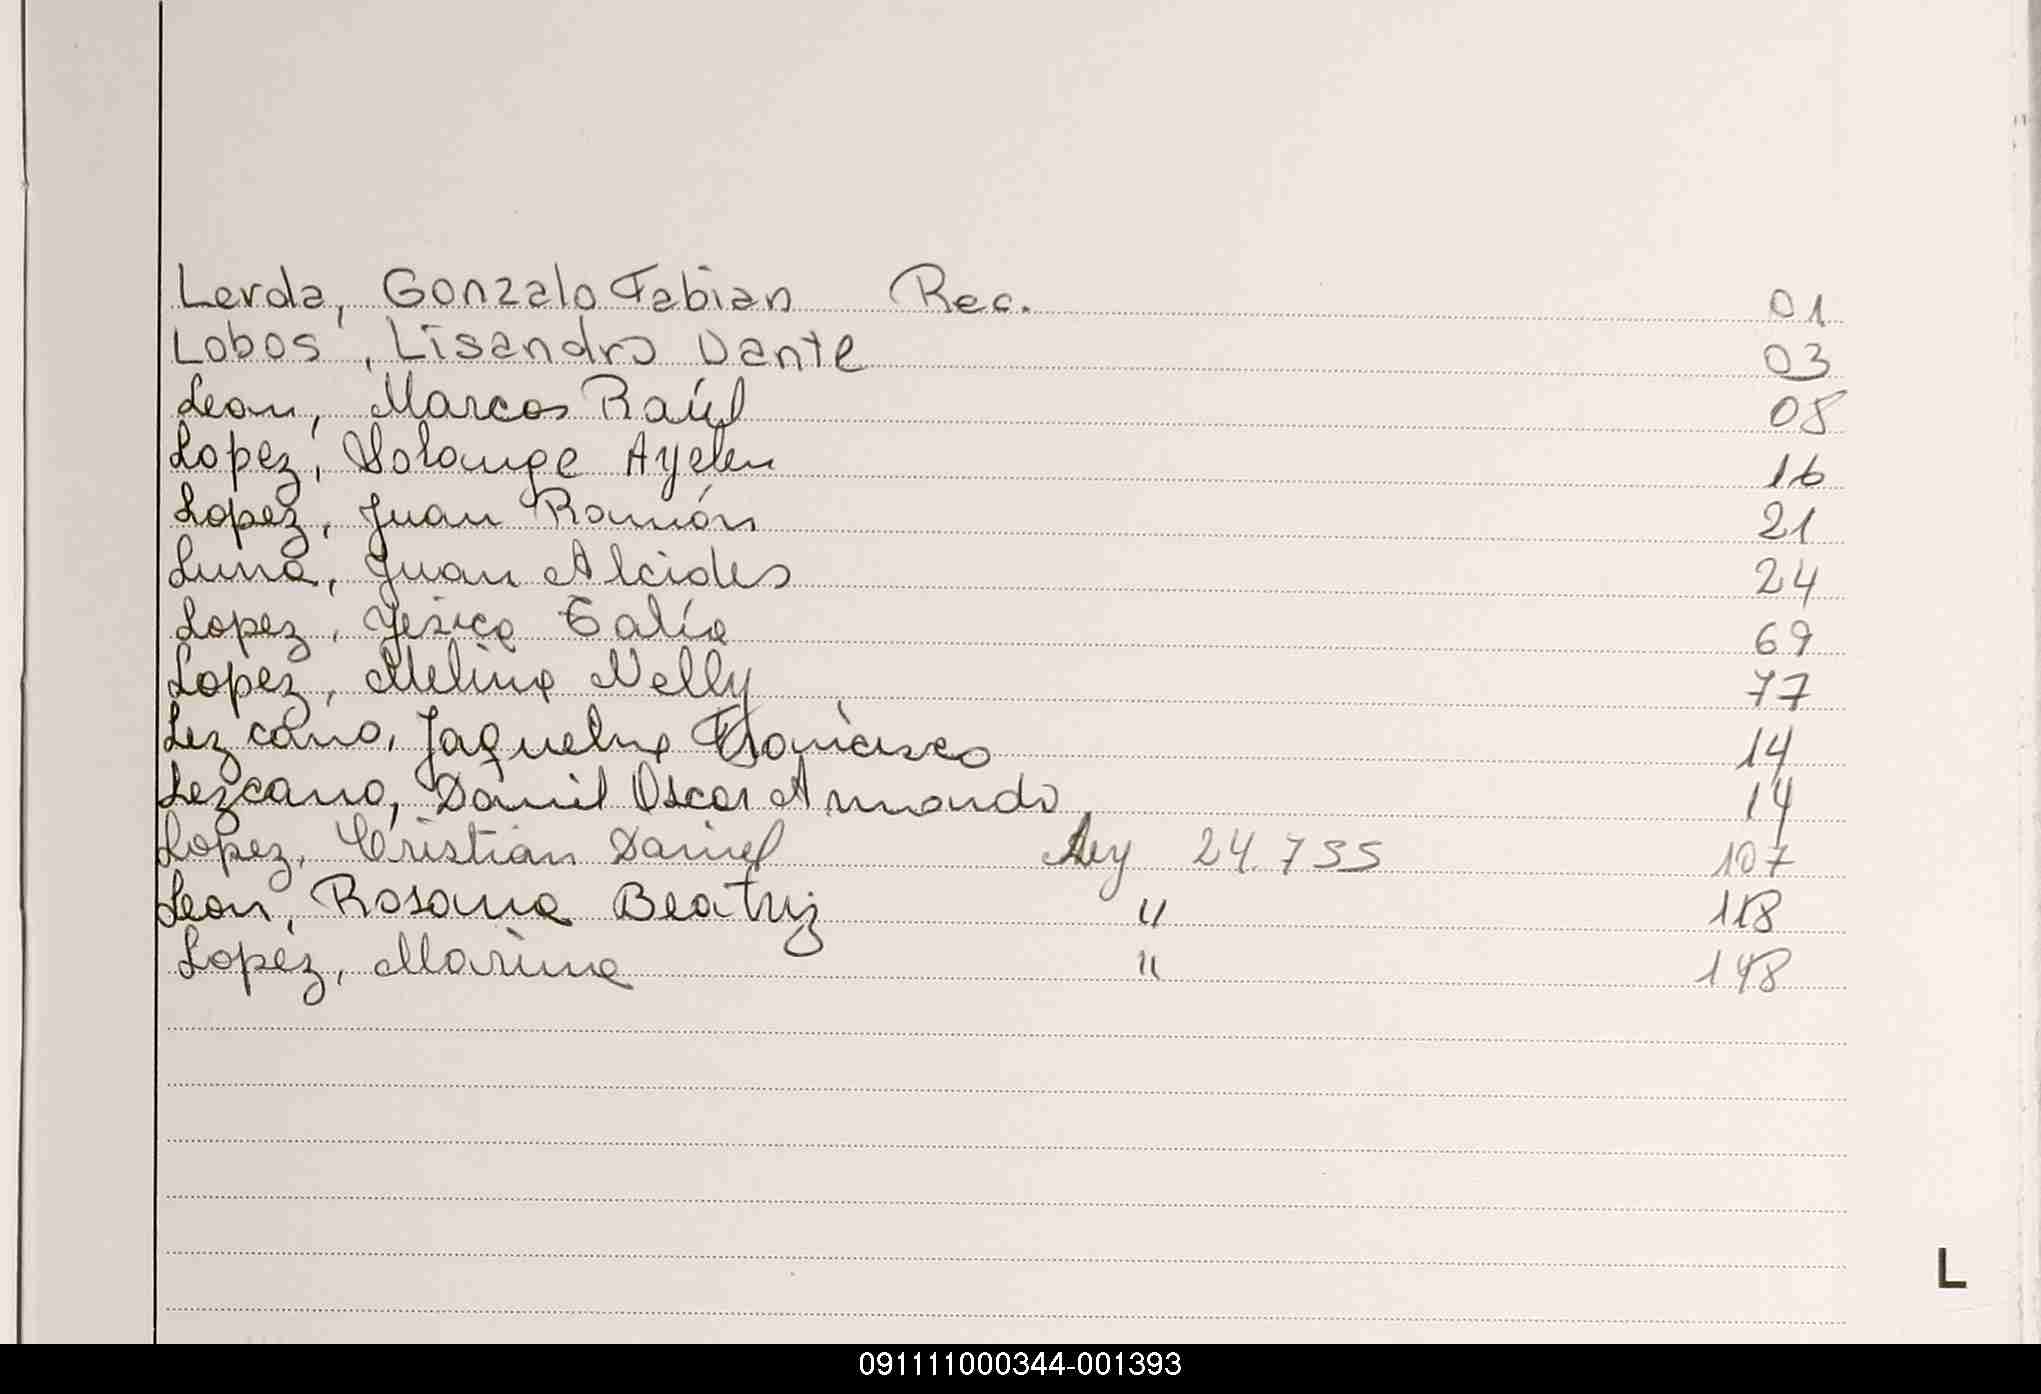 Lerda, Gonzalo Fabian Rec. 01
Lobos, Lisandro Dante 03
Leon, Marcos Raúl 08
Lopez, Solange Ayelen 16
Lopez, Juan Ramón 21
Luna, Juan Alcides 24
Lopez, Yesica Talía 69
Lopez, Melina Nelly 77
Lezcano, Jaqueline Francisco 14
Lezcano, Daniel Oscar Armando 14
Lopez, Cristian Daniel Ley 24.755 107
Leon, Rosana Beatriz " 118
Lopez, Marina " 148
L
091111000344-001393